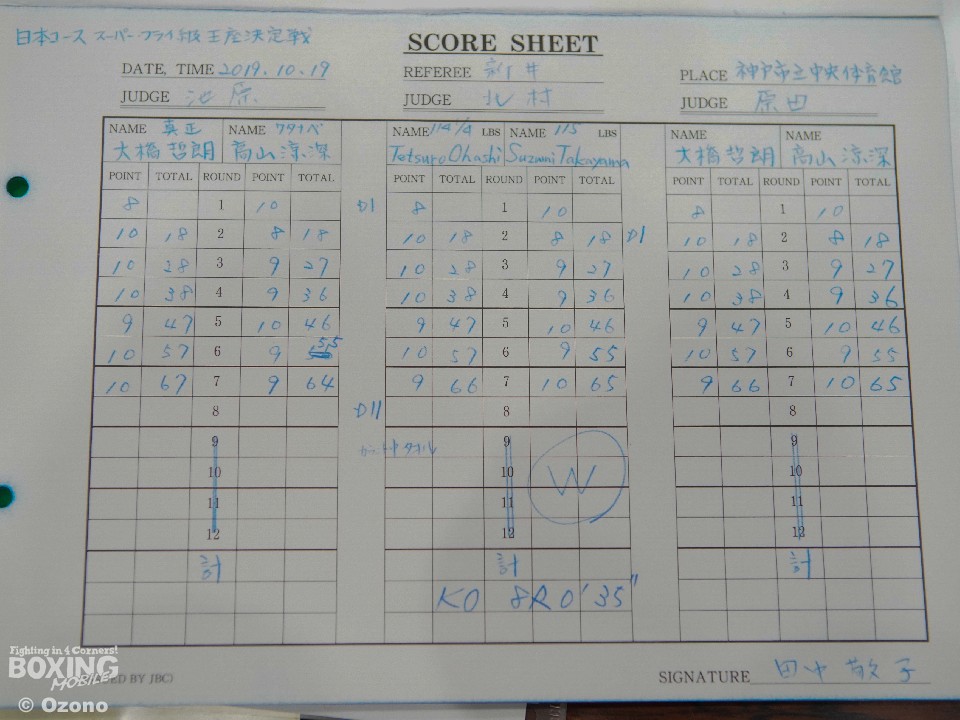 日本ユース スーパーフライ級王座決定戦
SCORE SHEET
DATE, TIME 2019.10.19 REFEREE 新井 PLACE 神戸市立中央体育館
JUDGE 池原 JUDGE 北村 JUDGE 原田
NAME 真正 NAME ワタナベ NAME 114 1/4 LBS NAME 115 LBS NAME NAME
大橋哲朗 高山涼深 Tetsuro Ohashi Suzumi Takayama 大橋哲朗 高山涼深
POINT TOTAL ROUND POINT TOTAL POINT TOTAL ROUND POINT TOTAL POINT TOTAL ROUND POINT TOTAL
8 1 10 D1 8 1 10 8 1 10
10 18 2 8 18 10 18 2 8 18 D1 10 18 2 8 18
10 28 3 9 27 10 28 3 9 27 10 28 3 9 27
10 38 4 9 36 10 38 4 9 36 10 38 4 9 36
9 47 5 10 46 9 47 5 10 46 9 47 5 10 46
10 57 6 9 55 10 57 6 9 55 10 57 6 9 55
10 67 7 9 64 9 66 7 10 65 9 66 7 10 65
8 8 8
9 タオル 9 9
10 10 W 10
11 11 11
12 12 12
計 計 計
KO 8R 0'35"
SIGNATURE 田中敬子
Fighting in 4 Corners!
BOXING
MOBILE
BY JBC)
© Ozono